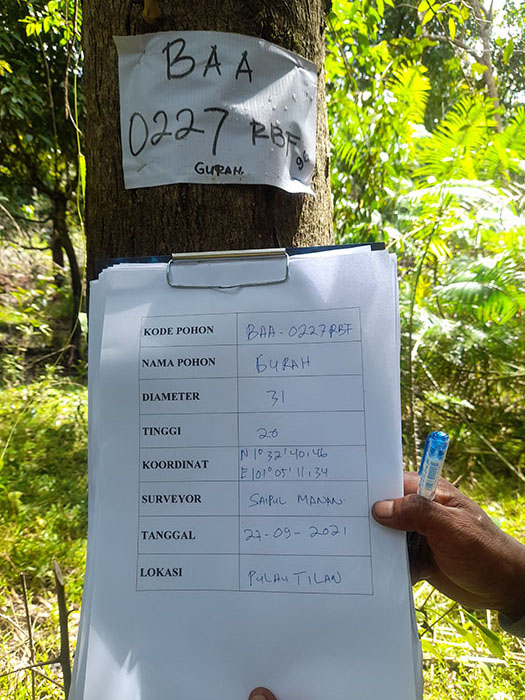 BAA
0227 RBF
96
GURAH
KODE POHON BAA-0227RBF
NAMA POHON GURAH
DIAMETER 31
TINGGI 20
KOORDINAT N 1° 32' 40,46
E 101° 05' 11,34
SURVEYOR SAIPUL MANAN
TANGGAL 27-09-2021
LOKASI PULAU TILAN